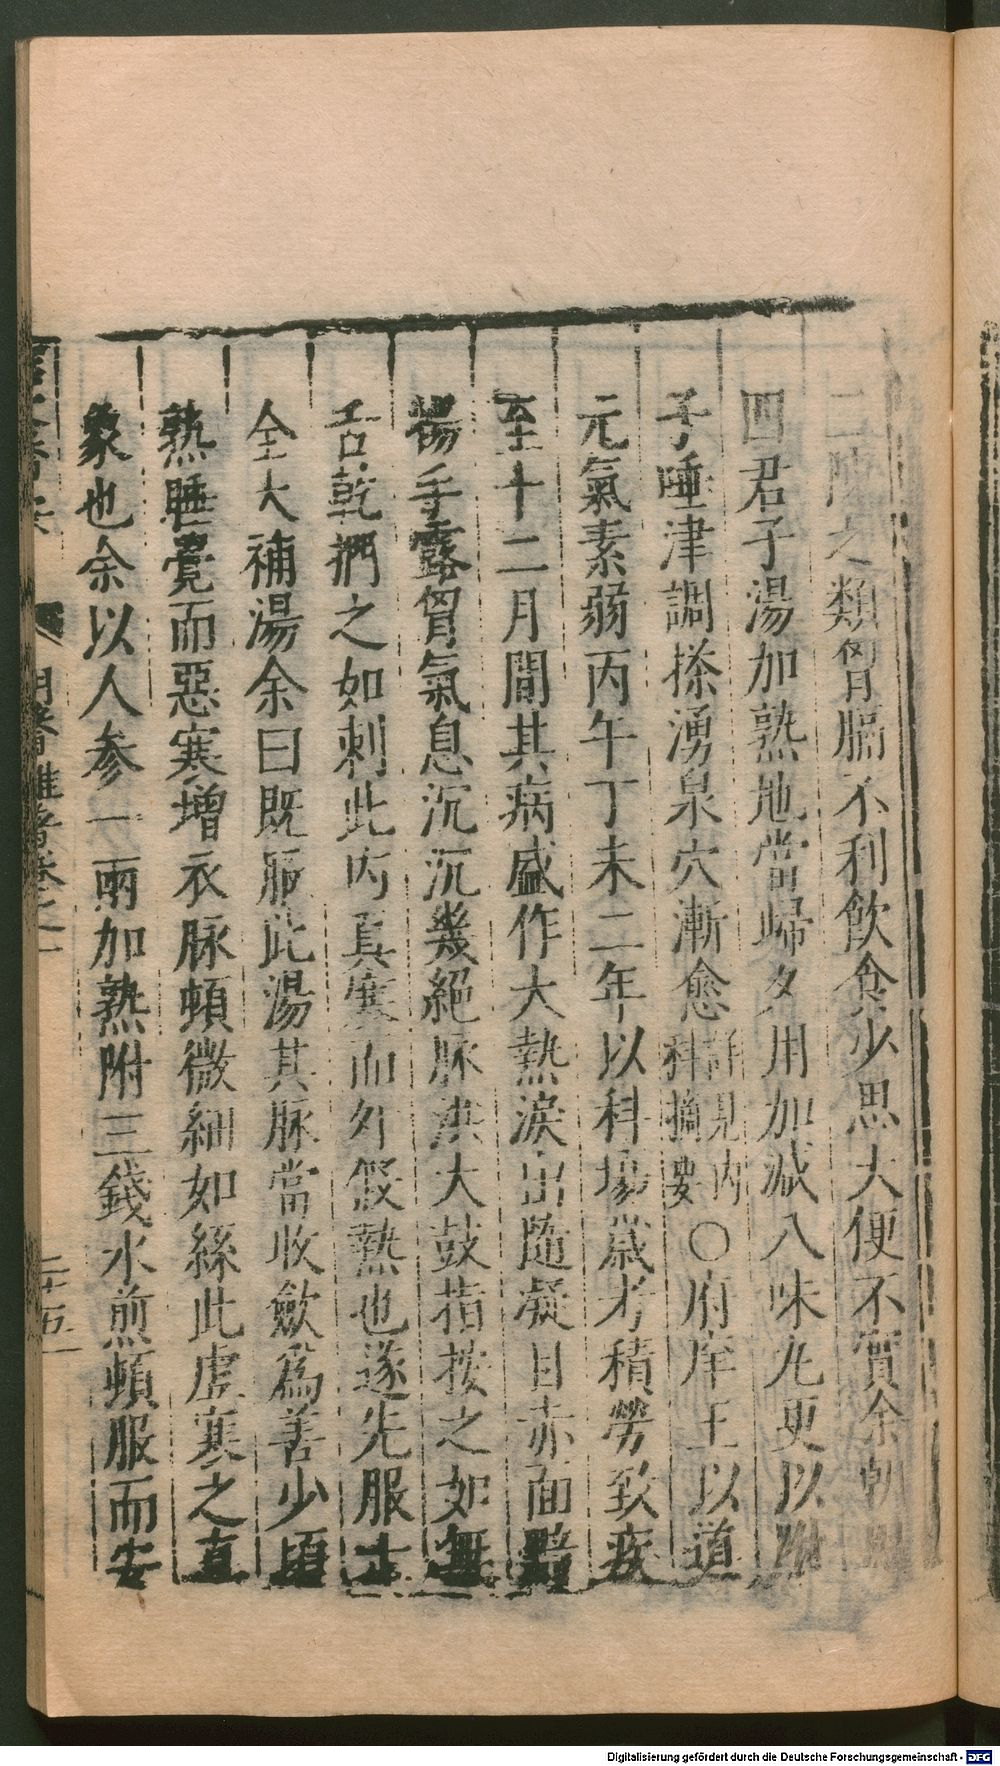 二陳之類胷膈不利飲食少思大便不實余朝用
四君子湯加熟地當歸夕用加減八味丸更以附
子唾津調搽湧泉穴漸愈詳見內科摘要〇府庠王以道
元氣素弱丙午丁未二年以科塲歲考積勞致疾
至十二月間其病盛作大熱淚出隨凝目赤面黯
揚手露胷氣息沉沉幾絕脉洪大鼓指按之如無
舌乾捫之如刺此內真寒而外假熱也遂先服十
全大補湯余曰既服此湯其脉當收斂爲善少頃
熟睡覺而惡寒增衣脉頓微細如絲此虛寒之真
象也余以人參一兩加熟附三錢水煎頓服而安
明醫雜著卷之一
二十五
Digitalisierung gefördert durch die Deutsche Forschungsgemeinschaft - DFG